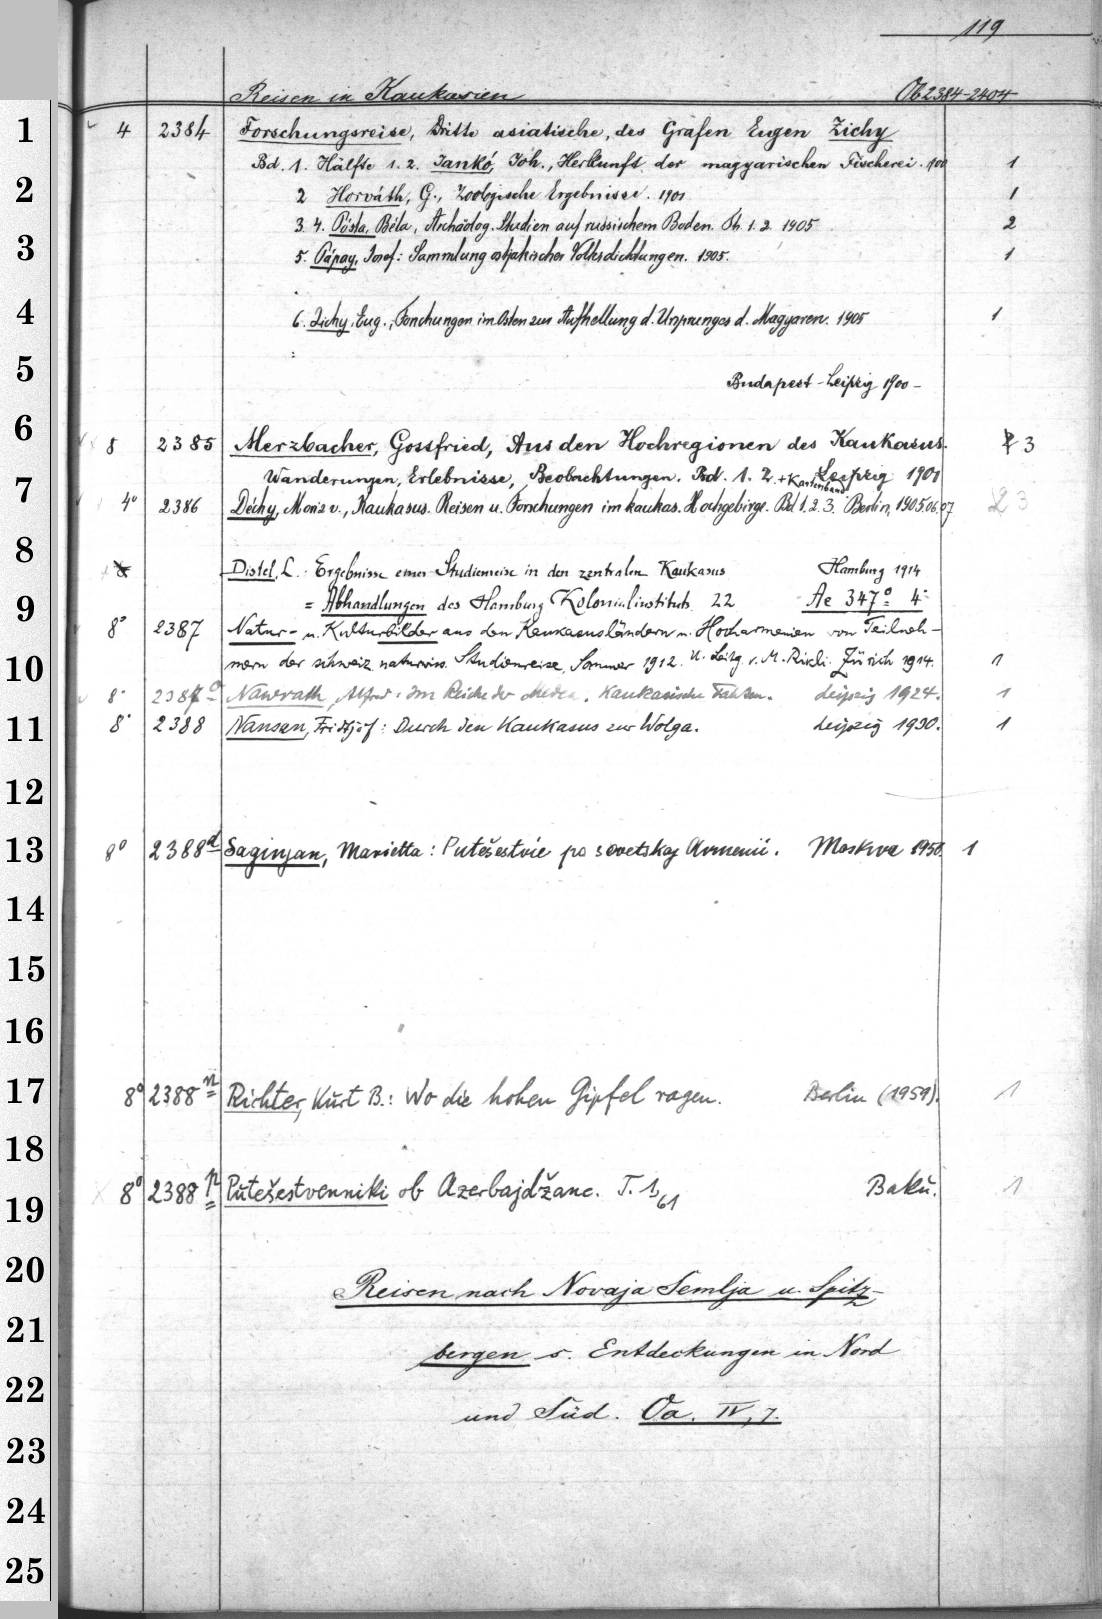 119
Reisen in Kaukasien Ob 2384-2404
1 4 2384 Forschungsreise, Dritte asiatische, des Grafen Eugen Zichy
Bd. 1. Hälfte 1. 2. Jankó, Joh., Herkunft der magyarischen Fischerei. 1900 1
2 2 Horváth, G., Zoologische Ergebnisse. 1901 1
3. 4. Pósta, Béla, Archäolog. Studien auf russischem Boden. Th. 1. 2. 1905 2
3 5. Pápay, Josef: Sammlung ostjakischer Volksdichtungen. 1905. 1
4 6. Zichy, Eug., Forschungen im Osten zur Aufhellung d. Ursprunges d. Magyaren. 1905 1
5 Budapest-Leipzig 1900-
6 8 2385 Merzbacher, Gottfried, Aus den Hochregionen des Kaukasus. 3
7 Wanderungen, Erlebnisse, Beobachtungen. Bd. 1. 2. + Kartenband. Leipzig 1901
4° 2386 Déchy, Moriz v., Kaukasus. Reisen u. Forschungen im kaukas. Hochgebirge. Bd 1. 2. 3. Berlin, 1905.06.07 3
8 8 Distel, L. Ergebnisse einer Studienreise in den zentralen Kaukasus Hamburg 1914
9 = Abhandlungen des Hamburg Kolonialinstituts 22 Ae 347° 4°
8° 2387 Natur- u. Kulturbilder aus den Kaukasusländern u. Hocharmenien von Teilneh-
10 mern der schweiz. naturwiss. Studienreise, Sommer 1912. U. Leitg. v. M. Rikli. Zürich 1914. 1
8° 2387 Nawrath, Alfred: Im Reiche der Medea. Kaukasische Fahrten. Leipzig 1924. 1
11 8° 2388 Nansen, Fridtjof: Durch den Kaukasus zur Wolga. Leipzig 1930. 1
12
13 8° 2388d Saginjan, Marietta: Putešestvie po sovetskoj Armenii. Moskva 1950. 1
14
15
16
17 8° 2388n Richter, Kurt B.: Wo die hohen Gipfel ragen. Berlin (1959). 1
18
19 8° 2388p Putešestvenniki ob Azerbajdžane. T. 1, 61 Baku. 1
20 Reisen nach Novaja Semlja u. Spitz-
21 bergen s. Entdeckungen in Nord
22 und Süd. Oa. IV, 7.
23
24
25